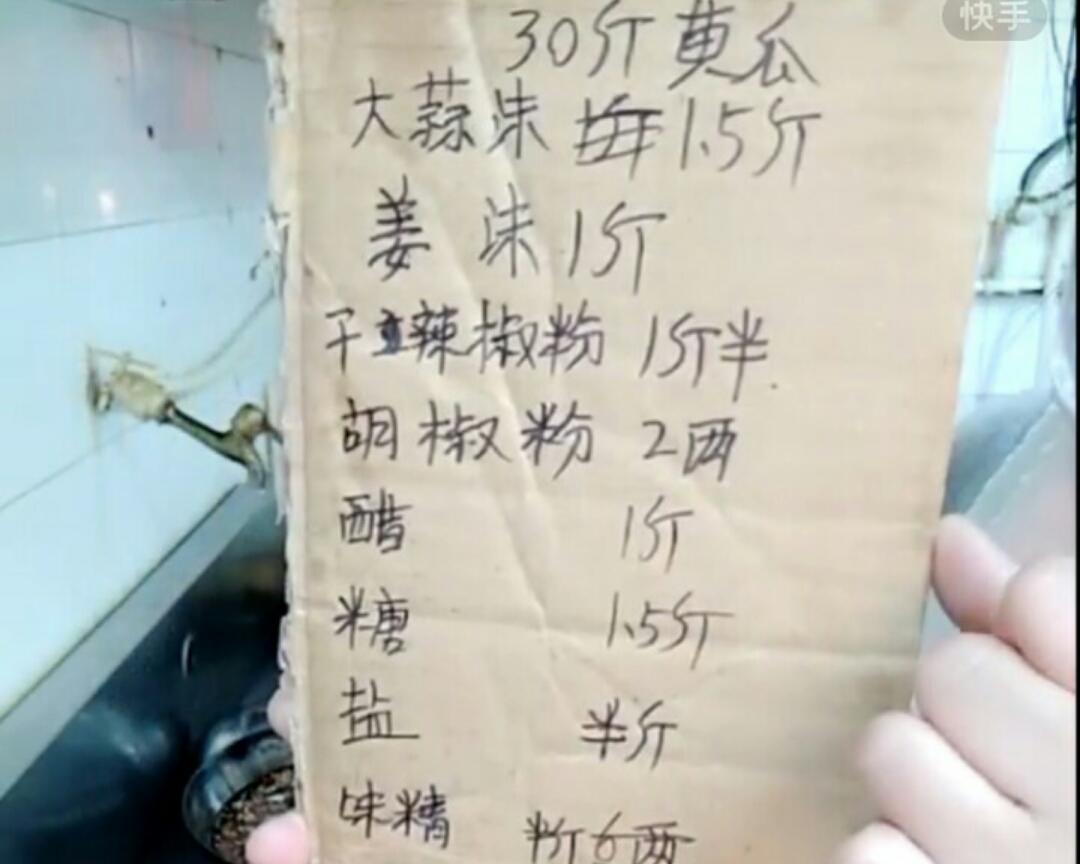 快手
30斤黄瓜
大蒜沫 1.5斤
姜 沫 1斤
干辣椒粉 1斤半
胡椒粉 2两
醋 1斤
糖 1.5斤
盐 半斤
味精 6两